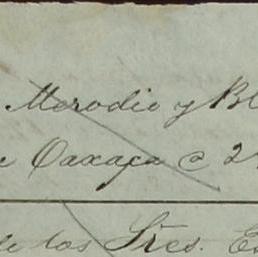 Merodio y Bl
e Oaxaca @ 2
de los Sres. E